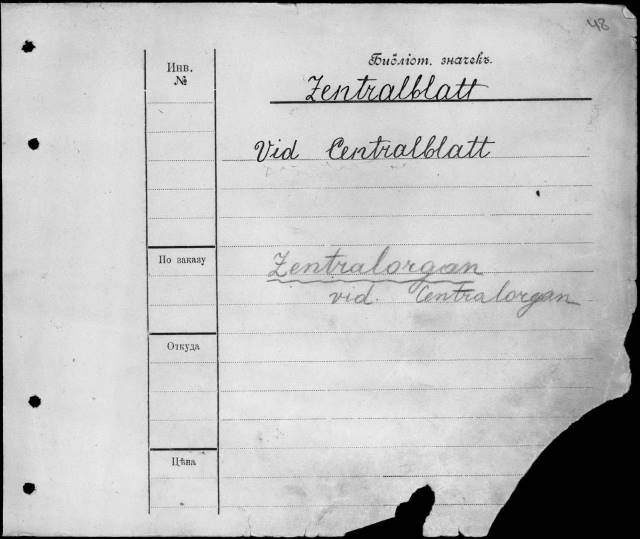 48
Библіот. значекъ.
Инв.
№
Zentralblatt
Vid Centralblatt
По заказу
Zentralorgan
vid. Centralorgan
Откуда
Цѣна